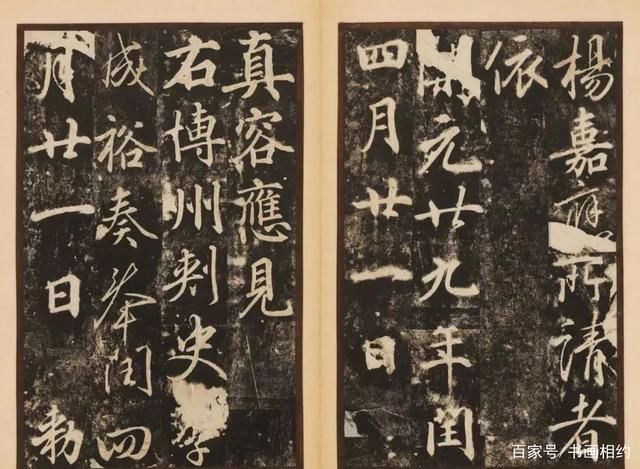 楊嘉應所請者
依
開元廿九年閏
四月廿一日
真容應見
右博州刺史李
成裕奏奉閏四
月廿一日勅
百家号/书画相约